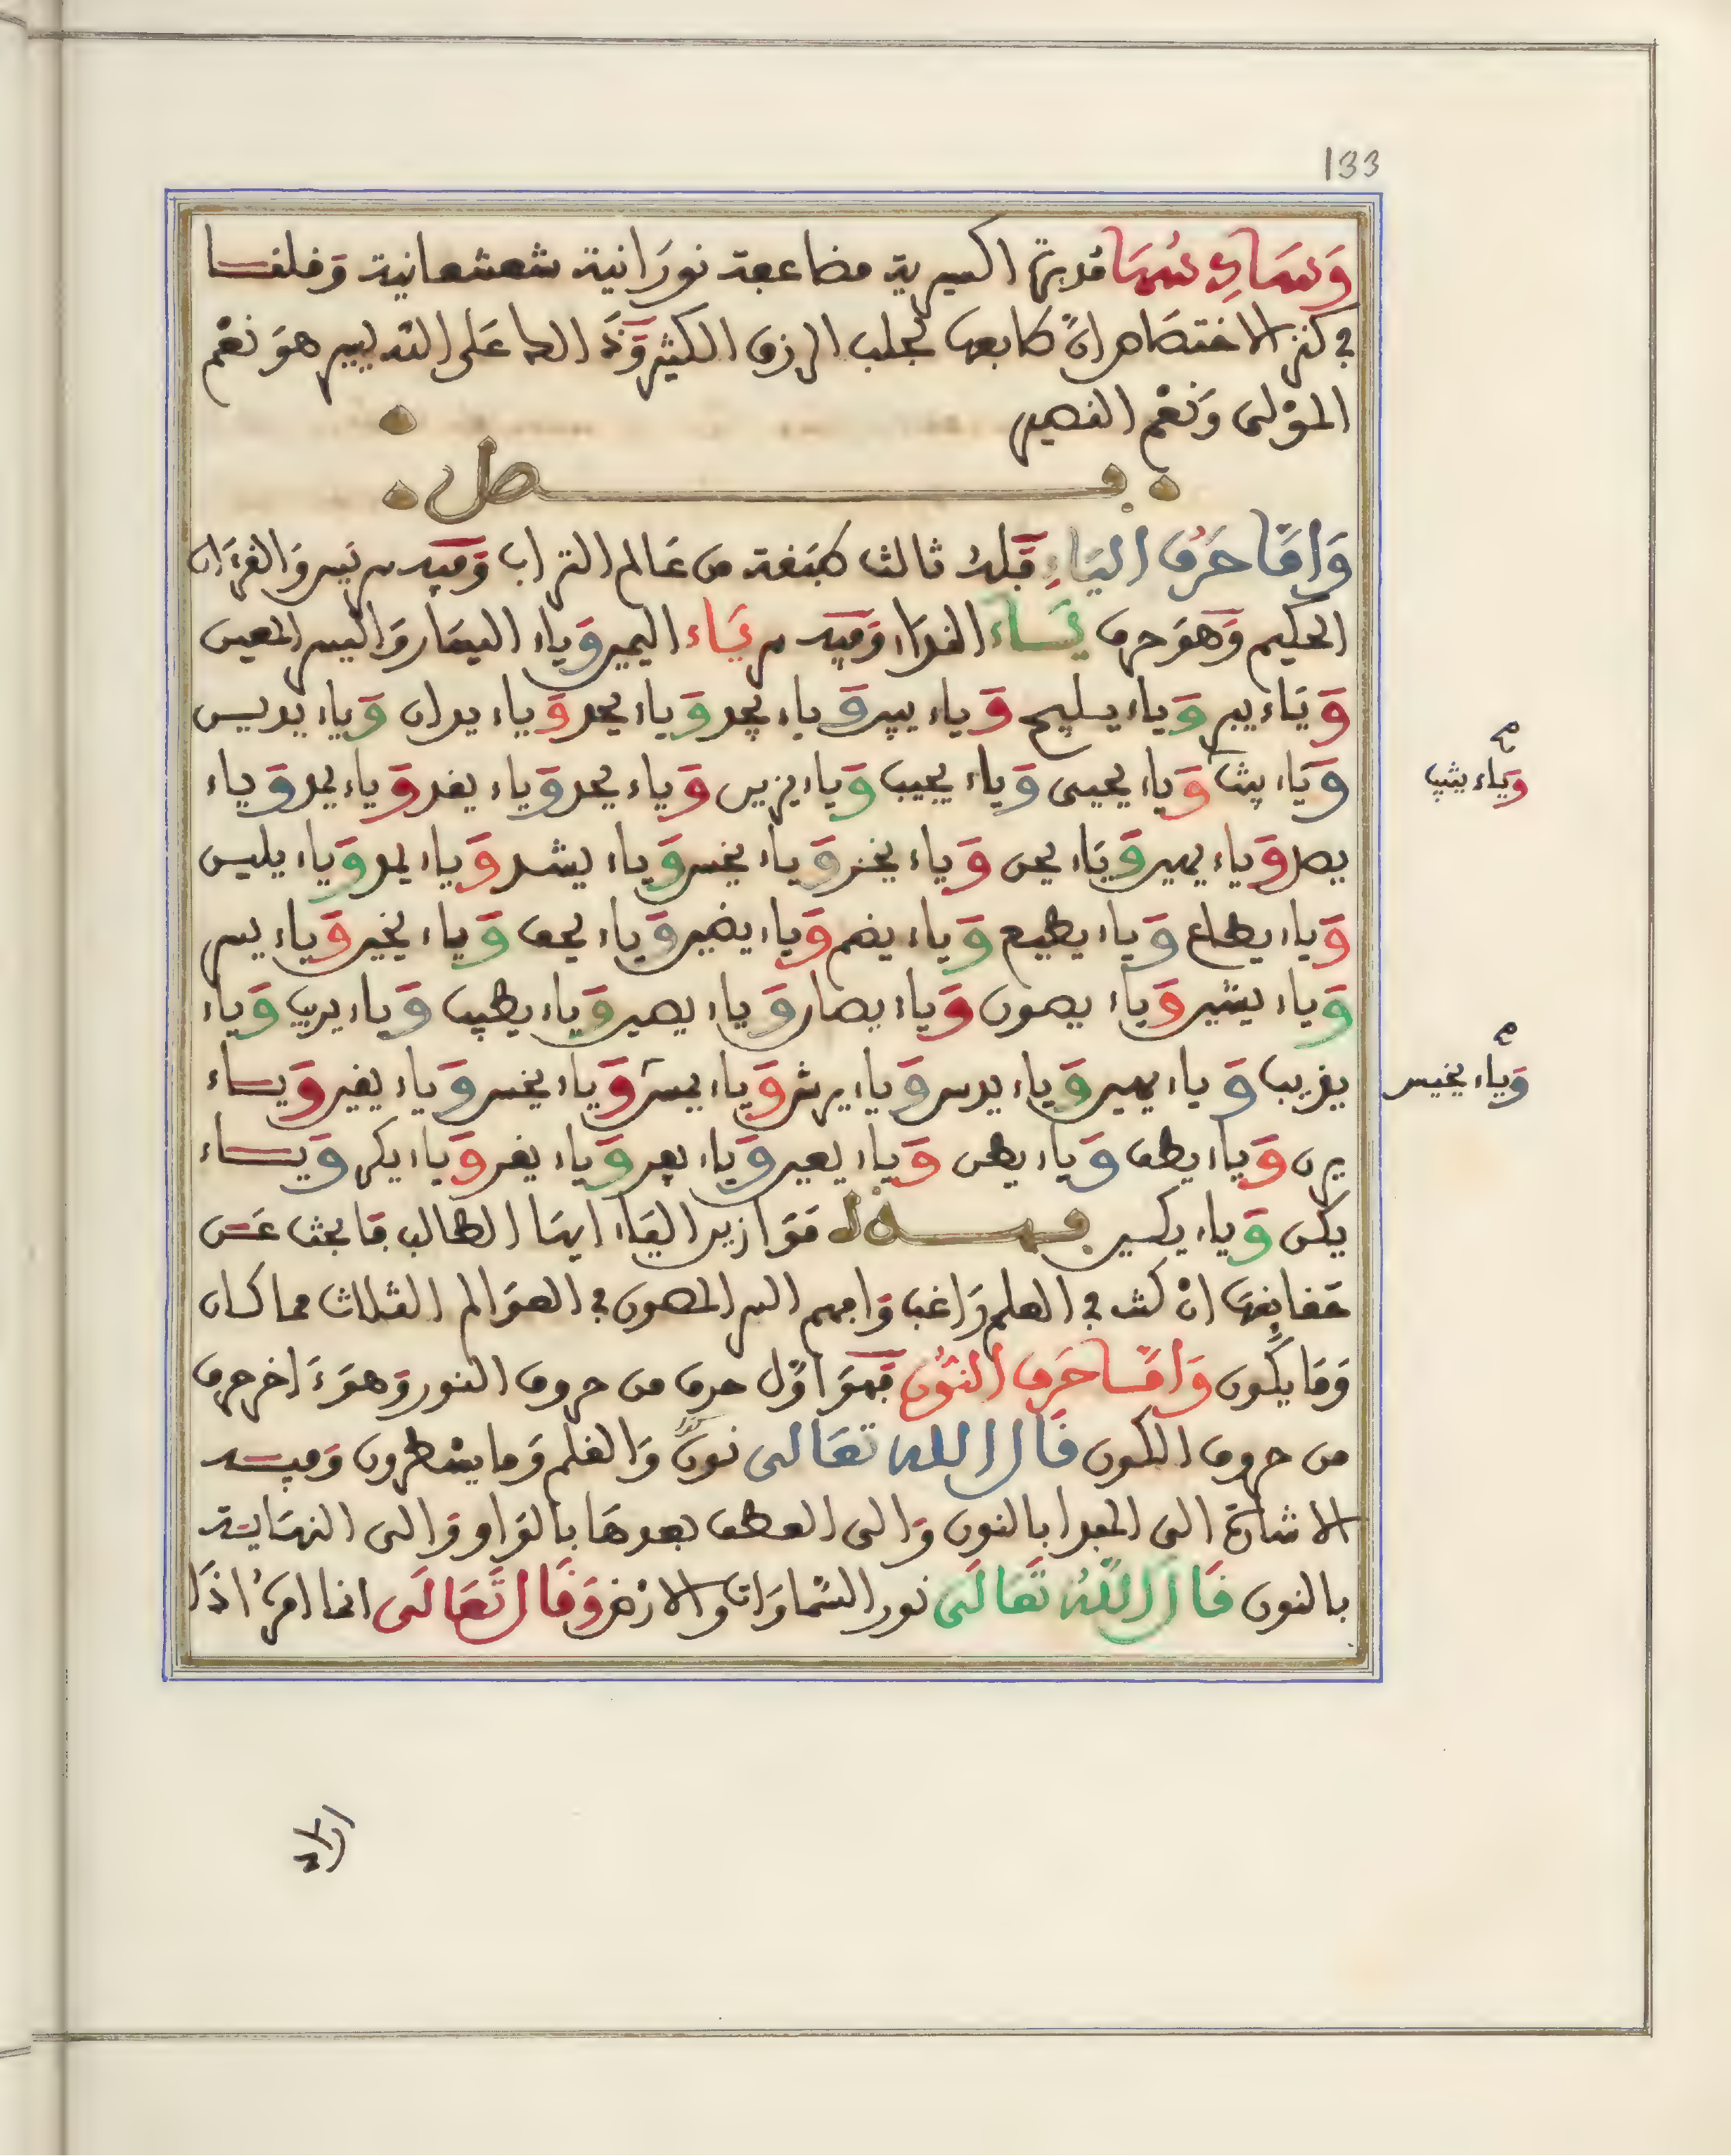 133
وَسَادِسُهَا قدبرة اكسيرية مضاعفة نورَانية شعشعانية وَقلنا
في كنز الاختصَاص انّ كا بعد لجلب الرزق الكثير وَالله الدا عَلى التدبير هوَ نعْم
المَوْلى وَنعْم النصير
فصل
وَامَّا حَرْف اليَاءِ فَلهُ ثالث طبَقة من عَالم التراب وَفيه سر يَس وَالقرءَان
الحكيم وَهوَ حرف يَاء الندَا، وَفيه سر يَاء اليمين وَياء اليسَار وَاليسر المعين
وَيَاء يبر وَياء يسليح وَياء يبير وَياء يجد وَياء يحد وَياء يدان وَياء يديس
وَيَاء يثبت وَياء يحيى وَياء يجيب وَياء يزير وَياء يحد وَياء يغد وَياء يمد وَياء
يصد وَياء يمير وَيَاء يحن وَياء يخز وَياء يخس وَياء يشد وَياء يمد وَياء يليس
وَياء يطاع وَياء يطيع وَياء يضم وَياء يضير وَياء يحف وَياء يخير وَياء يسر
وَياء يشير وَياء يصون وَياء يصار وَياء يصير وَياء يطيب وَياء يريب وَياء
يغريب وَياء يمير وَياء يدس وَياء يرش وَياء يمسّ وَياء يخس وَياء يغير وَيـاء
يرن وَياء يطف وَياء يطن وَياء يعير وَياء يعر وَياء يغر وَياء يكر وَيـاء
يكن وَياء يكسير فهذه مَوَازين اليَاء ايهَا الطالب فابحث عَن
حَقايقهَا انْ كنت في العلم رَاغب وَافهم السر المصون في العوَالم الثلاث مما كان
وَمَا يكون وَامَّا حَرف النُّون فَهوَ اوّل حرف من حروف النور وَهوَ ءَاخر حرف
من حروف الكون قَال الله تعَالى نونْ وَالقلم وَما يسْطرون وَفيه
الاشارة الى المبدا بالنون وَالى العطف بعدهَا بالوَاو وَالى النهَاية
بالنون قَال اللهُ تَعَالَى نور السّماوَات وَالارْض وَقَال تَعَالَى انما امرُهُ اذَا
وَياء يثيب
وَياء يخيس
اراد